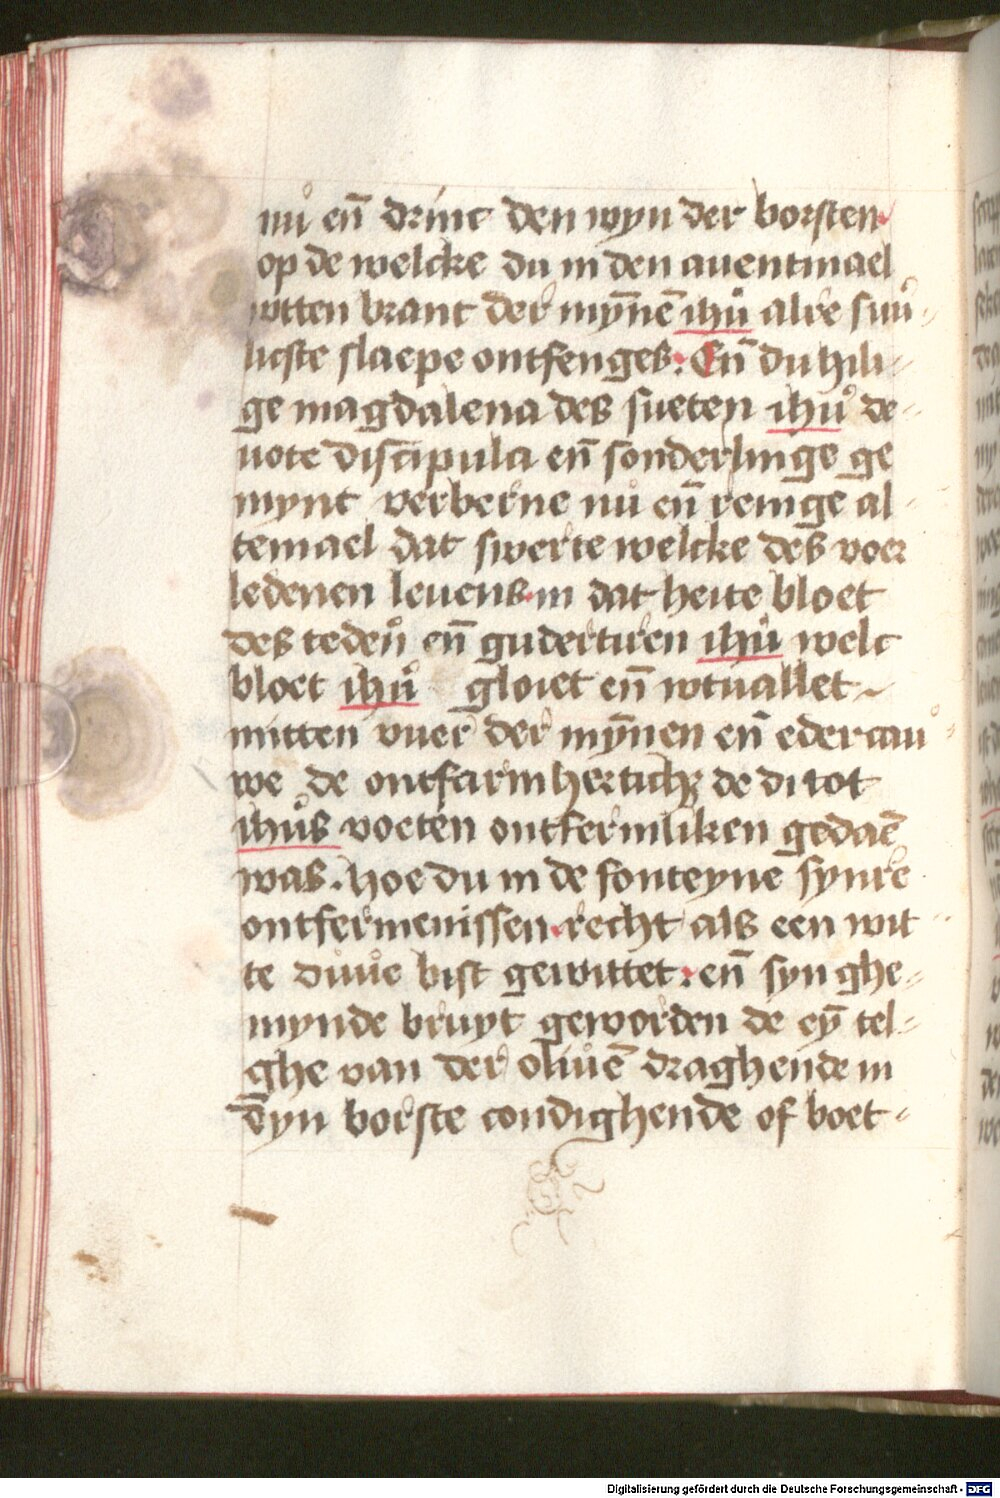 nů en̄ drinc den wyn der borsten
op de welcke du in den auentmael
wtten brant der myn̄en̄ ihů alre suů
licste slaepe ontfenges. En̄ du hili
ge magdalena des sueten ihů de
uote discipula en̄ sonderlinge ge
mynt verberne nů en̄ reinge al
temael dat swerte welcke des voer
ledenen leuens in dat heite bloet
des teden̊ en̄ gudertiren ihů welc
bloet ihů gloiet en̄ wtuallet
mitten vuer der myn̄en en̄ edercau
we de ontfarmherticħ de di tot
ihůs voeten ontfermliken gedaē
was. hoe du in de fonteyne synre
ontfermenissen recht als een wit
te důůe bist gewittet: en̄ syn ghe
mynde bruyt geworden de eȳ tel
ghe van der oliůē draghende in
dyn borste condighende of boet
Digitalisierung gefördert durch die Deutsche Forschungsgemeinschaft - DFG